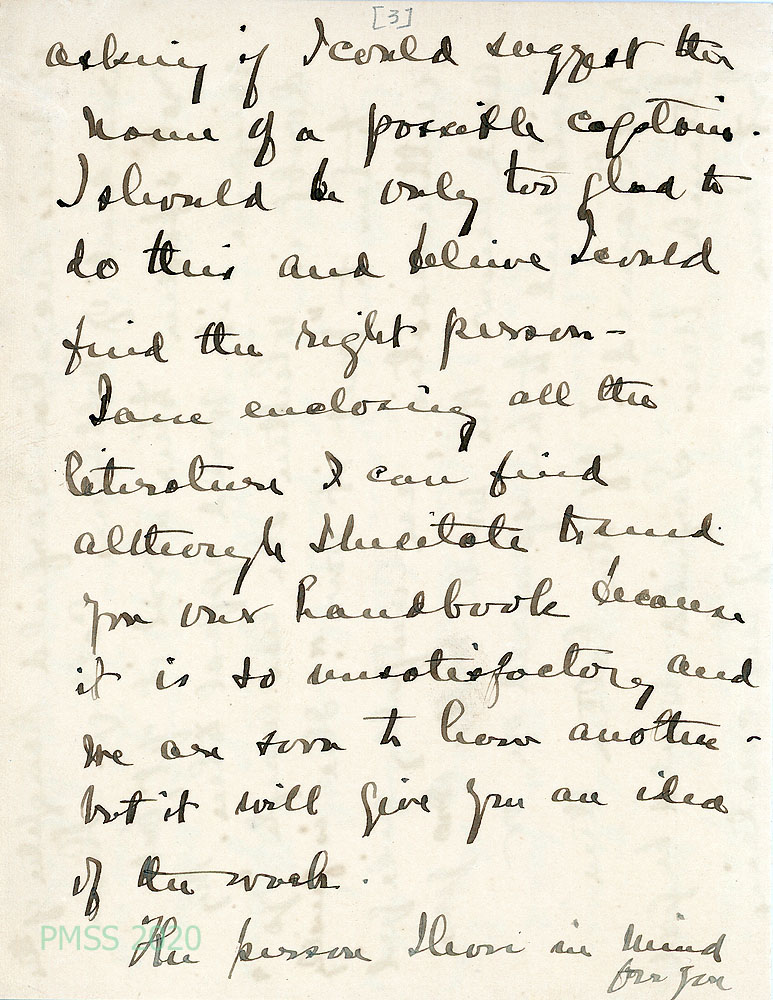 [3]
asking if I could suggest the
name of a possible captain.
I should be only too glad to
do this and believe I could
find the right person -
I am enclosing all the
literature I can find
although I hesitate to send
you our handbook because
it is so unsatisfactory and
we are soon to have another -
but it will give you an idea
of the work.
PMSS 2020
The person I have in mind
for you